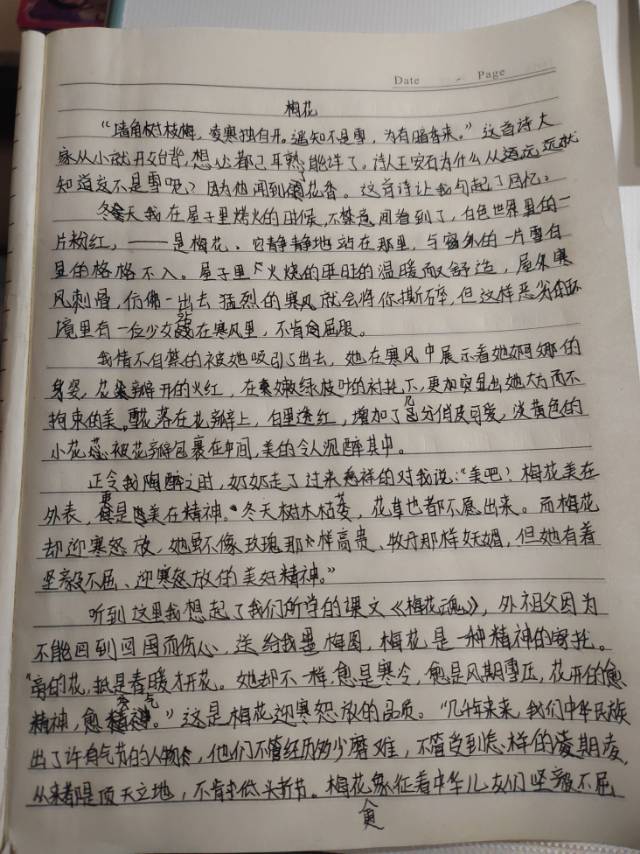 Date Page
梅花
“墙角数枝梅，凌寒独自开。遥知不是雪，为有暗香来。”这首诗大
家从小就开始背，想必都已耳熟能详了。诗人王安石为什么从远远就
知道这不是雪呢？因为他闻到的花香。这首诗让我勾起了回忆。
冬天我在屋子里烤火的时候，不禁意间看到了，白色世界里的一
片粉红，——是梅花、它静静地站在那里，与窗外的一片雪白
显的格格不入。屋子里火烧的旺旺的温暖而又舒适，屋外寒
风刺骨，仿佛一出去猛烈的寒风就会将你撕碎，但这样恶劣的环
境里有一位少女站在寒风里，不肯屈服。
我情不自禁的被她吸引了出去，她在寒风中展示着她婀娜的
身姿，花瓣开的火红，在嫩绿枝叶的衬托下，更加突显出她大方而不
拘束的美。雪花落在花瓣上，白里透红，增加了几分俏皮可爱，淡黄色的
小花蕊被花瓣包裹在中间，美的令人沉醉其中。
正令我陶醉之时，奶奶走了过来慈祥的对我说：“美吧？梅花美在
外表，更是美在精神。冬天树木枯萎，花草也都不愿出来。而梅花
却迎寒怒放，她虽不像玫瑰那样高贵、牡丹那样妖媚，但她有着
坚毅不屈、迎寒怒放的美好精神。”
听到这里我想起了我们所学的课文《梅花魂》，外祖父因为
不能回到回国而伤心，送给我墨梅图，梅花是一种精神的寄托。
“的花，是春暖才开花。她却不一样，愈是寒冷，愈是风欺雪压，花开的愈
精神，愈秀气。”这是梅花迎寒怒放的品质。“几千年来，我们中华民族
出了许多有气节的人物，他们不管经历多少磨难，不管受到怎样的凌期凌，
从来都是顶天立地，不肯低头折节。梅花象征着中华儿女们坚毅不屈